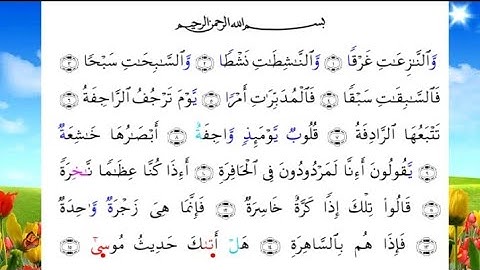 بسم الله الرحمن الرحيم
وَٱلنَّٰزِعَٰتِ غَرْقًا ١ وَٱلنَّٰشِطَٰتِ نَشْطًا ٢ وَٱلسَّٰبِحَٰتِ سَبْحًا ٣
فَٱلسَّٰبِقَٰتِ سَبْقًا ٤ فَٱلْمُدَبِّرَٰتِ أَمْرًا ٥ يَوْمَ تَرْجُفُ ٱلرَّاجِفَةُ ٦
تَتْبَعُهَا ٱلرَّادِفَةُ ٧ قُلُوبٌ يَوْمَئِذٍ وَاجِفَةٌ ٨ أَبْصَٰرُهَا خَٰشِعَةٌ ٩
يَقُولُونَ أَءِنَّا لَمَرْدُودُونَ فِى ٱلْحَافِرَةِ ١٠ أَءِذَا كُنَّا عِظَٰمًا نَّخِرَةً ١١
قَالُوا۟ تِلْكَ إِذًا كَرَّةٌ خَاسِرَةٌ ١٢ فَإِنَّمَا هِىَ زَجْرَةٌ وَٰحِدَةٌ ١٣
فَإِذَا هُم بِٱلسَّاهِرَةِ ١٤ هَلْ أَتَىٰكَ حَدِيثُ مُوسَىٰٓ ١٥